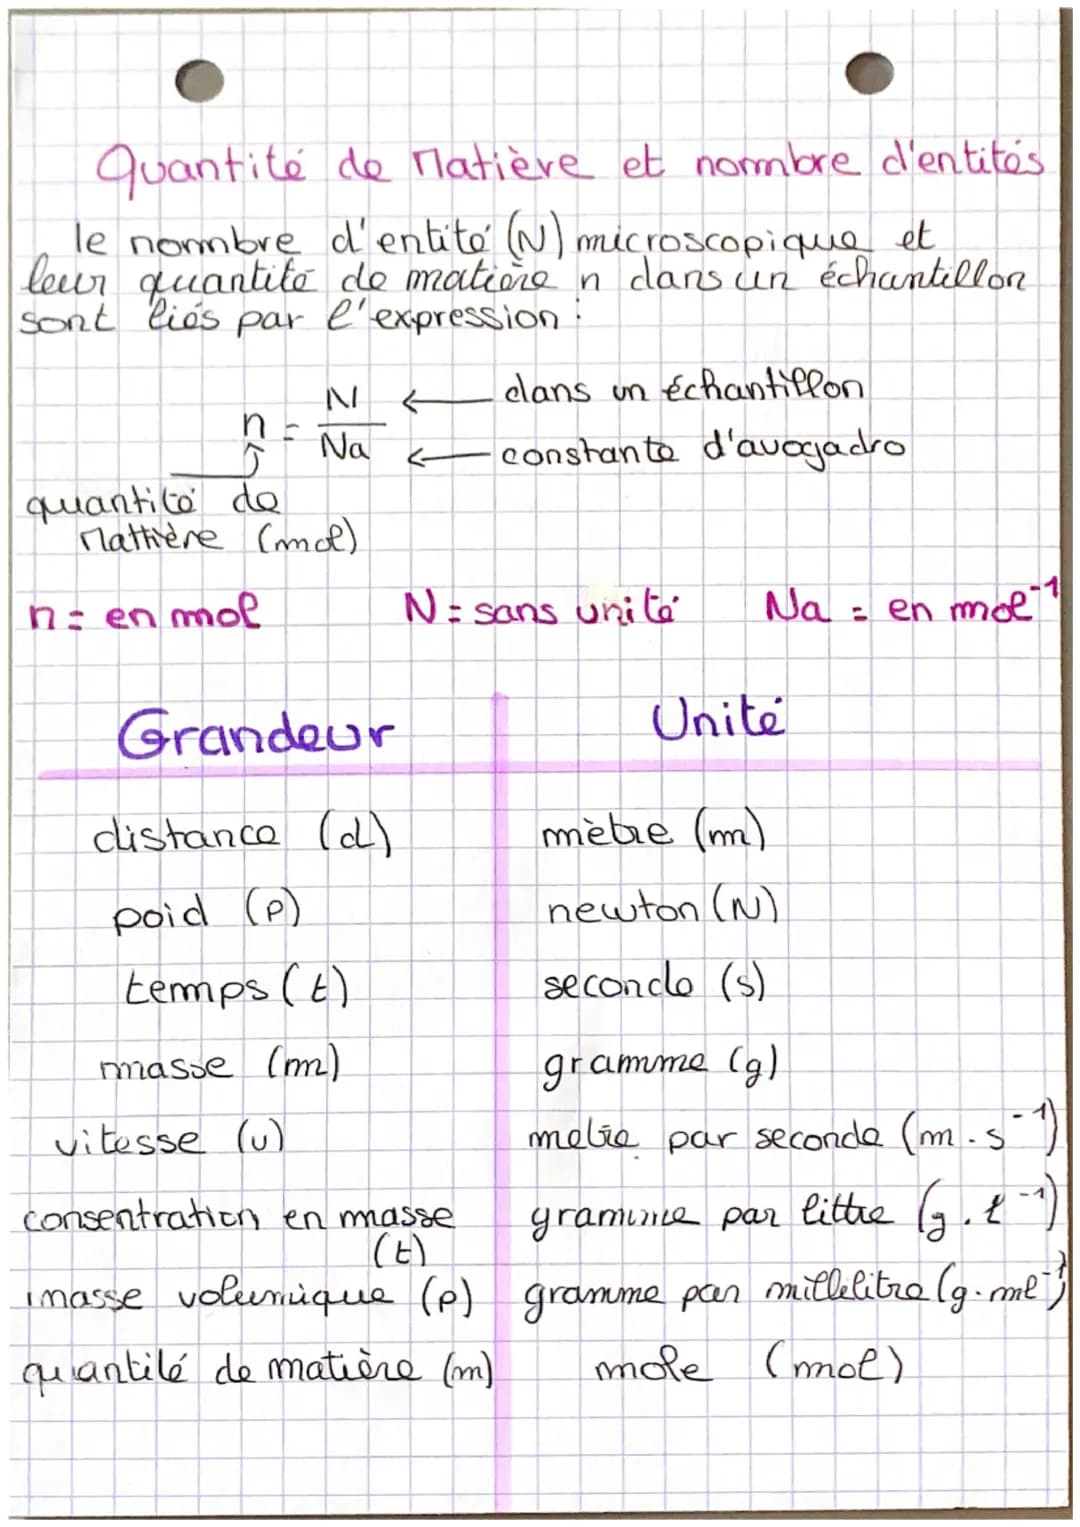 Quantité de Matière et nombre d'entités
le nombre d'entité (N) microscopique et
leur quantité de matière n dans un échantillon
sont liés par l'expression :
n = N / Na
← dans un échantillon
← constante d'avogadro
quantité de
Mattière (mol)
n = en mol N = sans unité Na = en mol⁻¹
Grandeur Unité
distance (d) mètre (m)
poid (P) newton (N)
temps (t) seconde (s)
masse (m) gramme (g)
vitesse (v) metre par seconde (m.s⁻¹)
consentration en masse gramme par littre (g.l⁻¹)
(t)
masse volumique (ρ) gramme par millilitre (g.ml⁻¹)
quantité de matière (m) mole (mol)